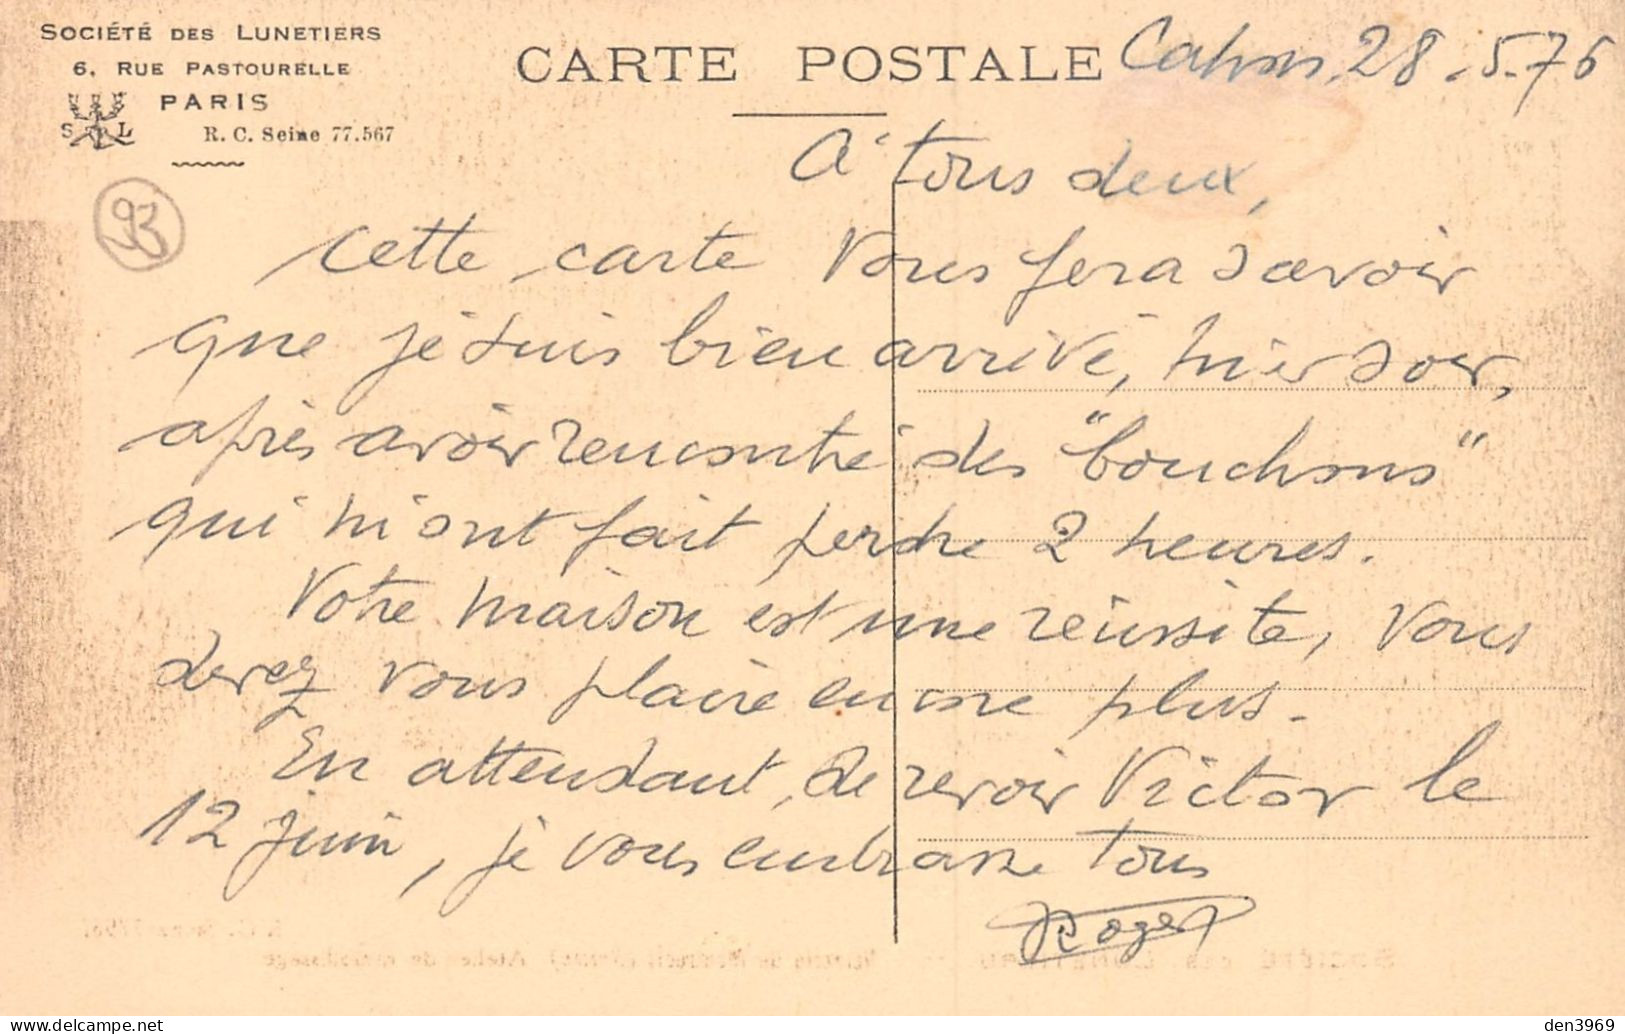 SOCIÉTÉ DES LUNETIERS
6, RUE PASTOURELLE
PARIS
S L
R. C. Seine 77.567
CARTE POSTALE
Cahors, 28.5.76
93
A tous deux,
Cette carte vous fera savoir
que je suis bien arrivé, hier soir,
après avoir rencontré des "bouchons"
qui m'ont fait perdre 2 heures.
Votre maison est une réussite, vous
devez vous plaire encore plus.
En attendant, de revoir Victor le
12 juin, je vous embrasse tous
Roger
den3969